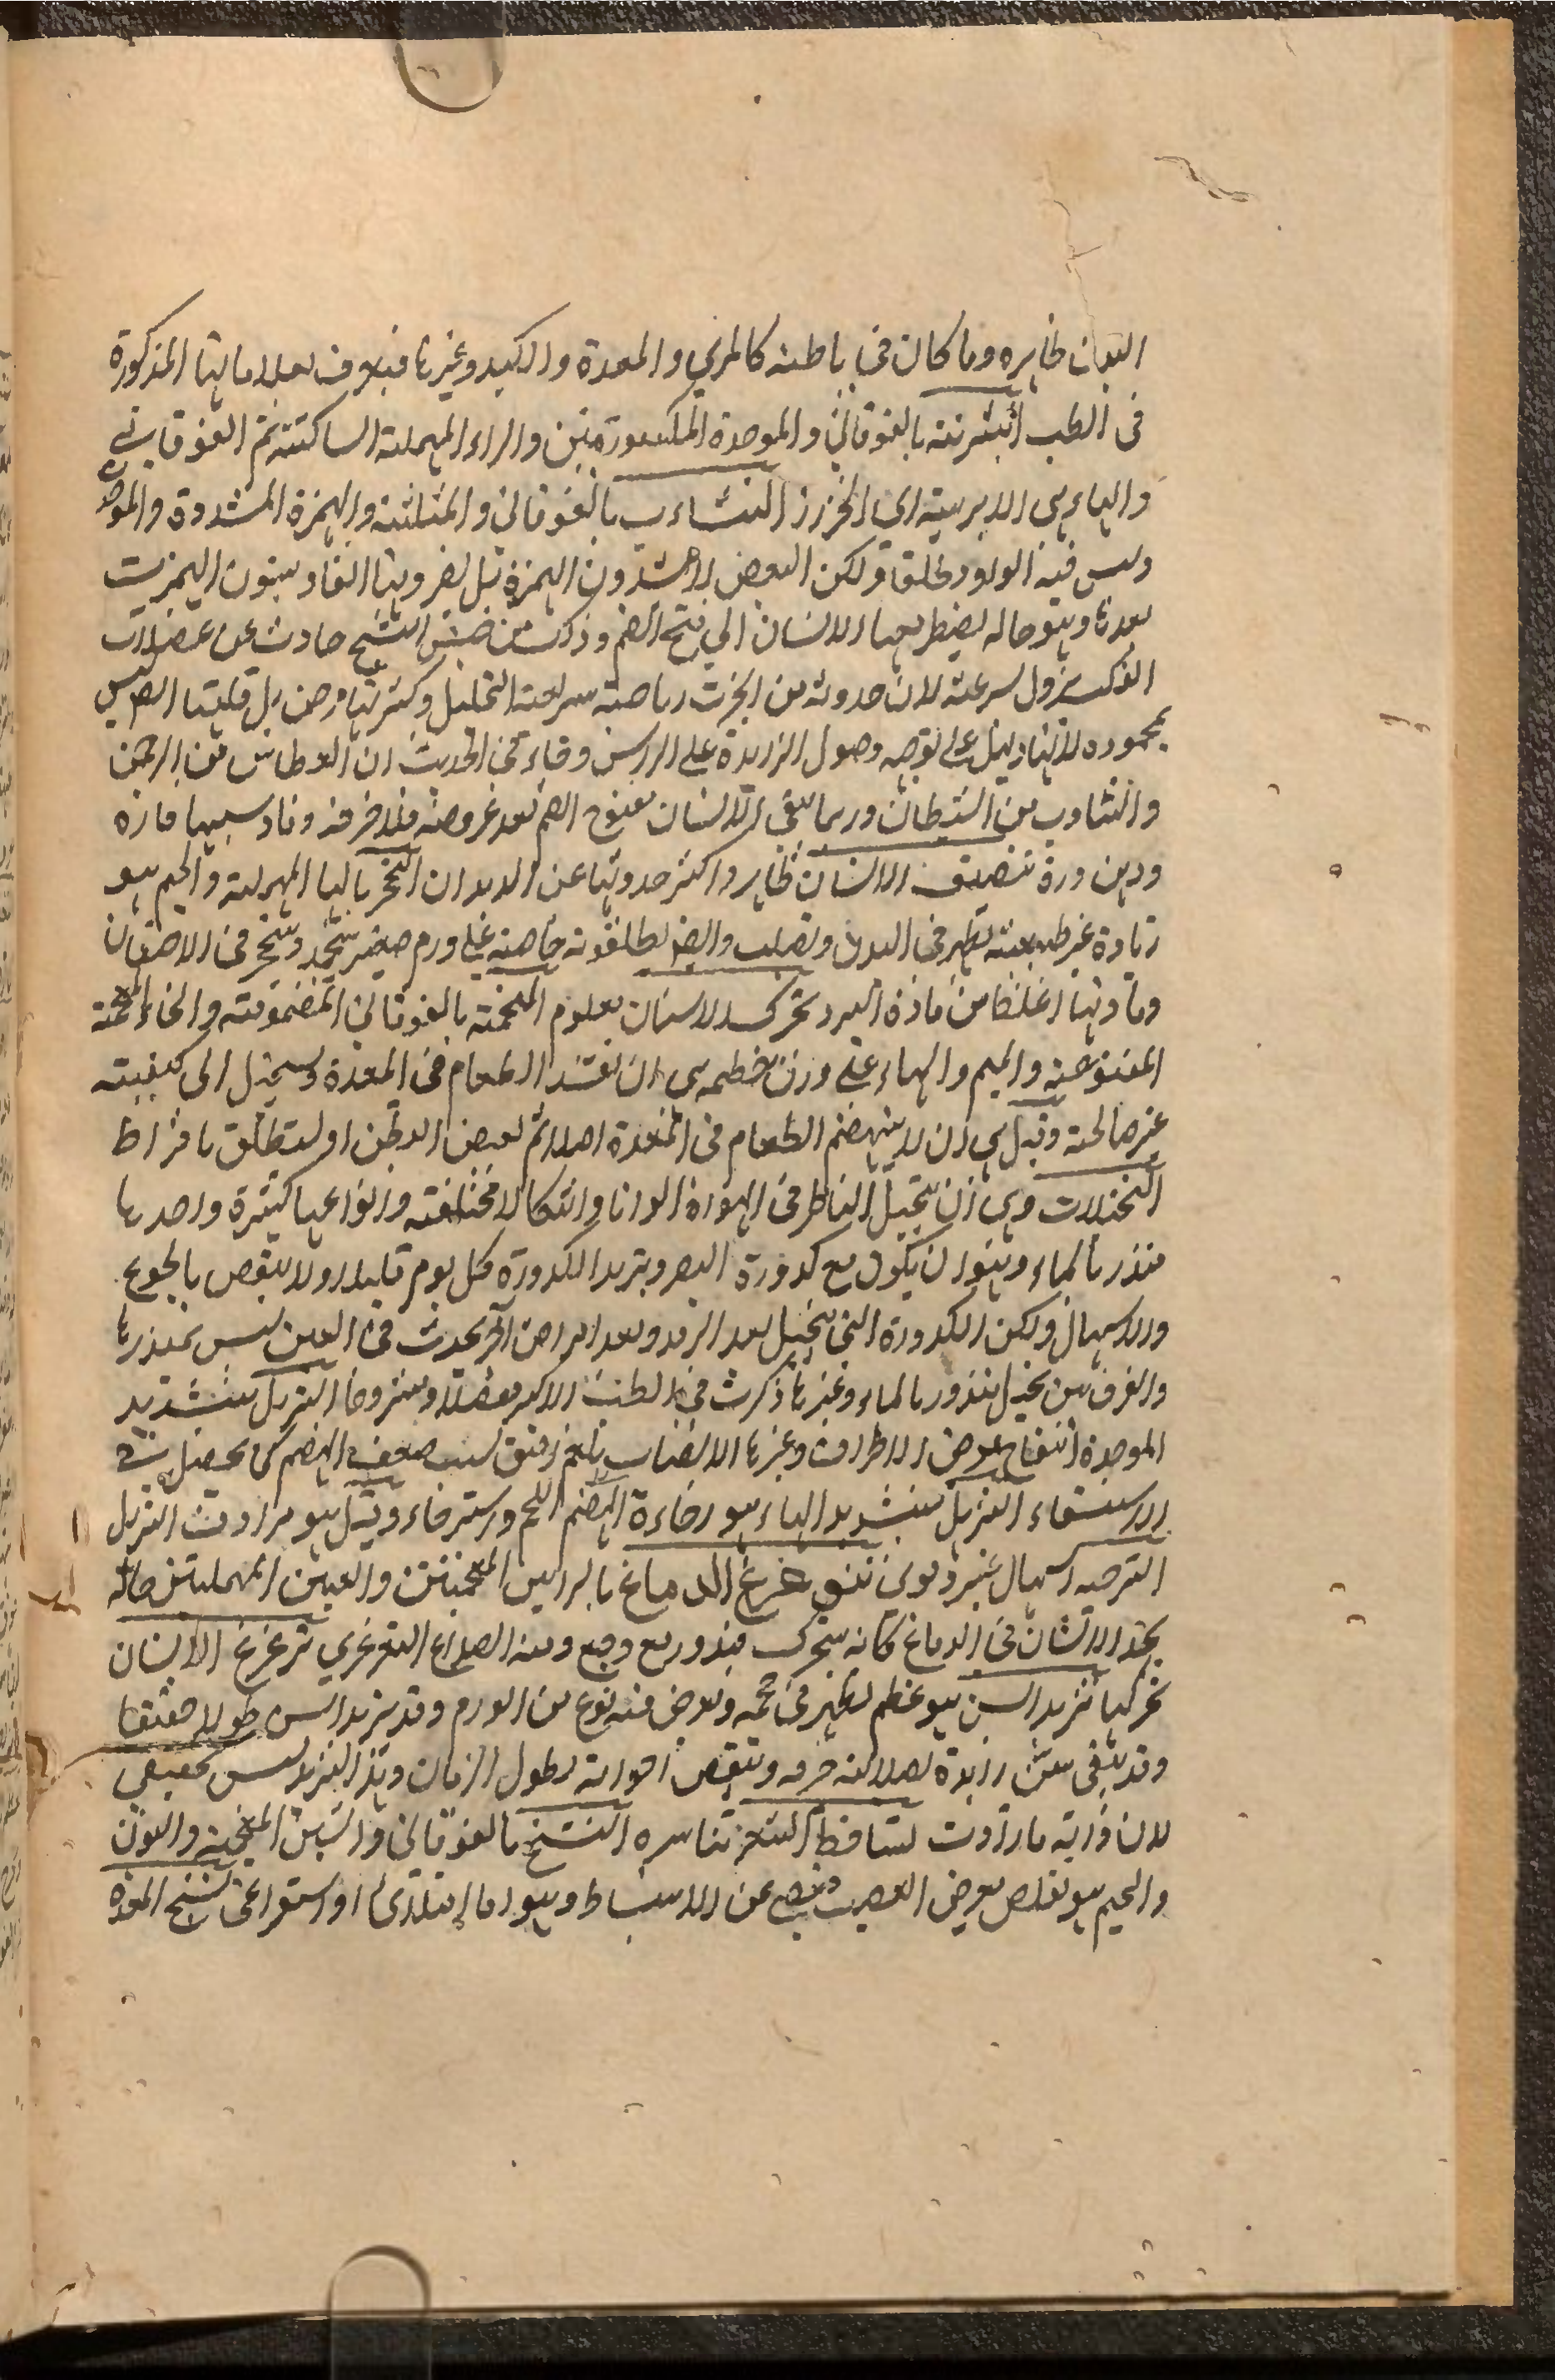 البدن ظاهره وما كان في باطنه كالمري والمعدة والكبد وغيرها فيعرف بعلاماتها المذكورة
في الطب التبثرية بالفوقاني والموحدة المكسورتين والراء المهملة الساكنة ثم الفوقاني
والهاء هي الابرية اي الخزاز التثاءب بالفوقاني والمثلثة والهمزة المشددة والموحدة
وليس فيه الواو مطلقا ولكن البعض لا يشددون الهمزة بل يضربونها الفا ويبنون الهمزة
بعدها وهو حالة يضطر بها الانسان الي فتح الفم وذلك من جنس التشنج حادث عن عضلات
الفك يزول بسرعة لان حدوثه من ابخرة رياحية سريعة التحليل وكثرتها مرض بل قلتها ايضا ليس
بمحمودة لانها يدل على توجه وصول الزايدة على الراس وجاء في الحديث ان العطاس من الرحمن
والتثاوب من الشيطان وربما يبقي الانسان مفتوح الفم بعد عروضه
ودهن وردة تنضيف الاسنان ظاهر واكثر حدوثها عن الديدان التحجر بالحا المهملة والجيم هو
زيادة غير طبيعية تظهر في البدن وتصلب وايضا يطلقونه خاصة علي ورم صغير يتجمد ويتحجر في الاجفان
ومادتها اغلظ من مادة البرد تحرك الاسنان معلوم التخمة بالفوقاني المضمومة والخاء المعجمة
المفتوحة والميم والهاء على وزن حطمه هي ان يفسد الطعام في المعدة ويستحيل الى كيفية
غير صالحة وقيل هي ان لا ينهضم الطعام في المعدة اصلا ثم يقبض البطن او يستطلق بافراط
التخيلات وهي ان يتخيل الناظر في الهواء الوانا واشكالا مختلفة وانواعها كثيرة واحدها
منذر بالماء وهو ان يكون مع كدورة البصر ويزيد الكدورة كل يوم قليلا ولا ينقص بالجوع
والاسهال ولكن الكدورة التي يتخيل بعد الرمد وبعد امراض اخر يحدث في العين ليس بمنذر بها
والفرق بين تخيل منذر بالماء وغيرها ذكرت في الطب الاكبر مفصلا ومشروحا التهبل بتشديد
الموحدة انتفاخ يعرض الاطراف وغيرها لانصباب بلغم رقيق لسبب ضعف الهضم كما يحصل في
الاستسقاء الترهل بتشديد الهاء هو رخاوة الهضم اللحم واسترخاء وقيل هو مرادف التهبل
الترحيه اسهال غير دموي تزعزع الدماغ بالزايين المعجمتين والعينين المهملتين حالة
يجد الانسان في الدماغ كانه يتحرك ويدور مع وجع ومنه الصداع التزعزعي تزعزع الاسنان
تحركها تزيد السن هو عظم يظهر في لحمه ويعرض فيه نوع من الورم وقد يزيد السن طولا حقيقا
وقد يبقى سن زايدة لصلابة جرمه وينقص اخواته بطول الزمان وهذا التزيد ليس بحقيقي
لان ذاته ما زادت تساقط الشعر تناسره التشنج بالفوقاني والشين المعجمة والنون
والجيم هو تقلص يعرض العصب ويمنع عن الانبساط وهو اما امتلائي او استفراغي تشنج المعدة